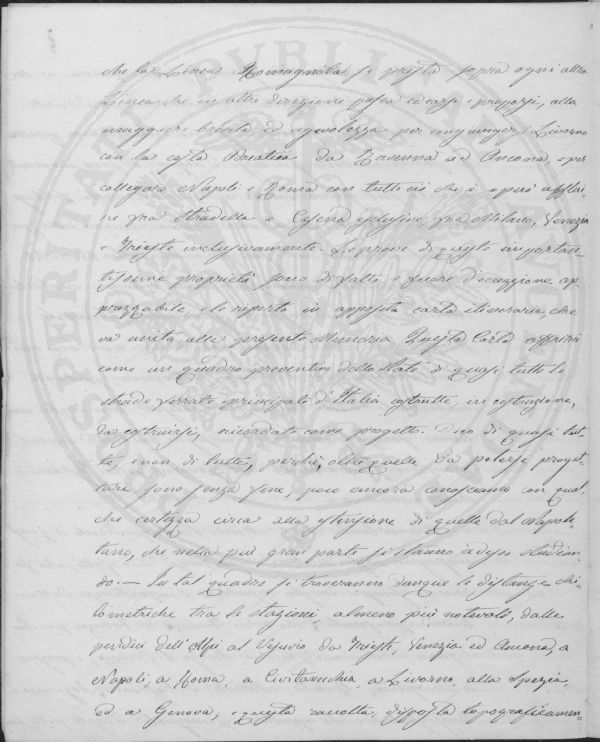 che la Linea Romagnola si presta sopra ogni altra
Linea che in altre direzioni possa idearsi e proporsi, alla
maggiore brevità ed agevolezza per congiungere Livorno
con la costa Adriatica da Ravenna ad Ancona, e per
collegare Napoli e Roma con tutto ciò che è oppur
fra Stradella e Casena esclusive, fra Milano, Venezia
e Trieste inclusivamente. Le prove di queste importan-
tissime proprietà sono di fatto, e fuori d'eccezione ap-
prezzabile, e le riporto in apposita carta itineraria, che
va unita alla presente Memoria. Questa Carta offrirà
come un quadro preventivo dello stato di quasi tutte le
strade ferrate principali d'Italia costrutte, in costruzione,
da costruirsi, ricordate come progetto. Dico di quasi tut-
te, e non di tutte, perchè, oltre quelle da potersi proget-
tare sono senza fine, poco ancora conosciamo con qual-
che certezza circa alla estensione di quelle del Napole-
tano, che nella più gran parte si stanno adesso studian-
do. — In tal quadro si troveranno dunque le distanze chi-
lometriche tra le stazioni, almeno più notevoli, dalle
pendici dell'Alpi al Vesuvio, da Trieste, Venezia ed Ancona, a
Napoli, a Roma, a Civitavecchia, a Livorno, alla Spezia,
ed a Genova; e questa raccolta, disposta topograficamen-
PROSPERITATI PVBLICAE AVGENDAE